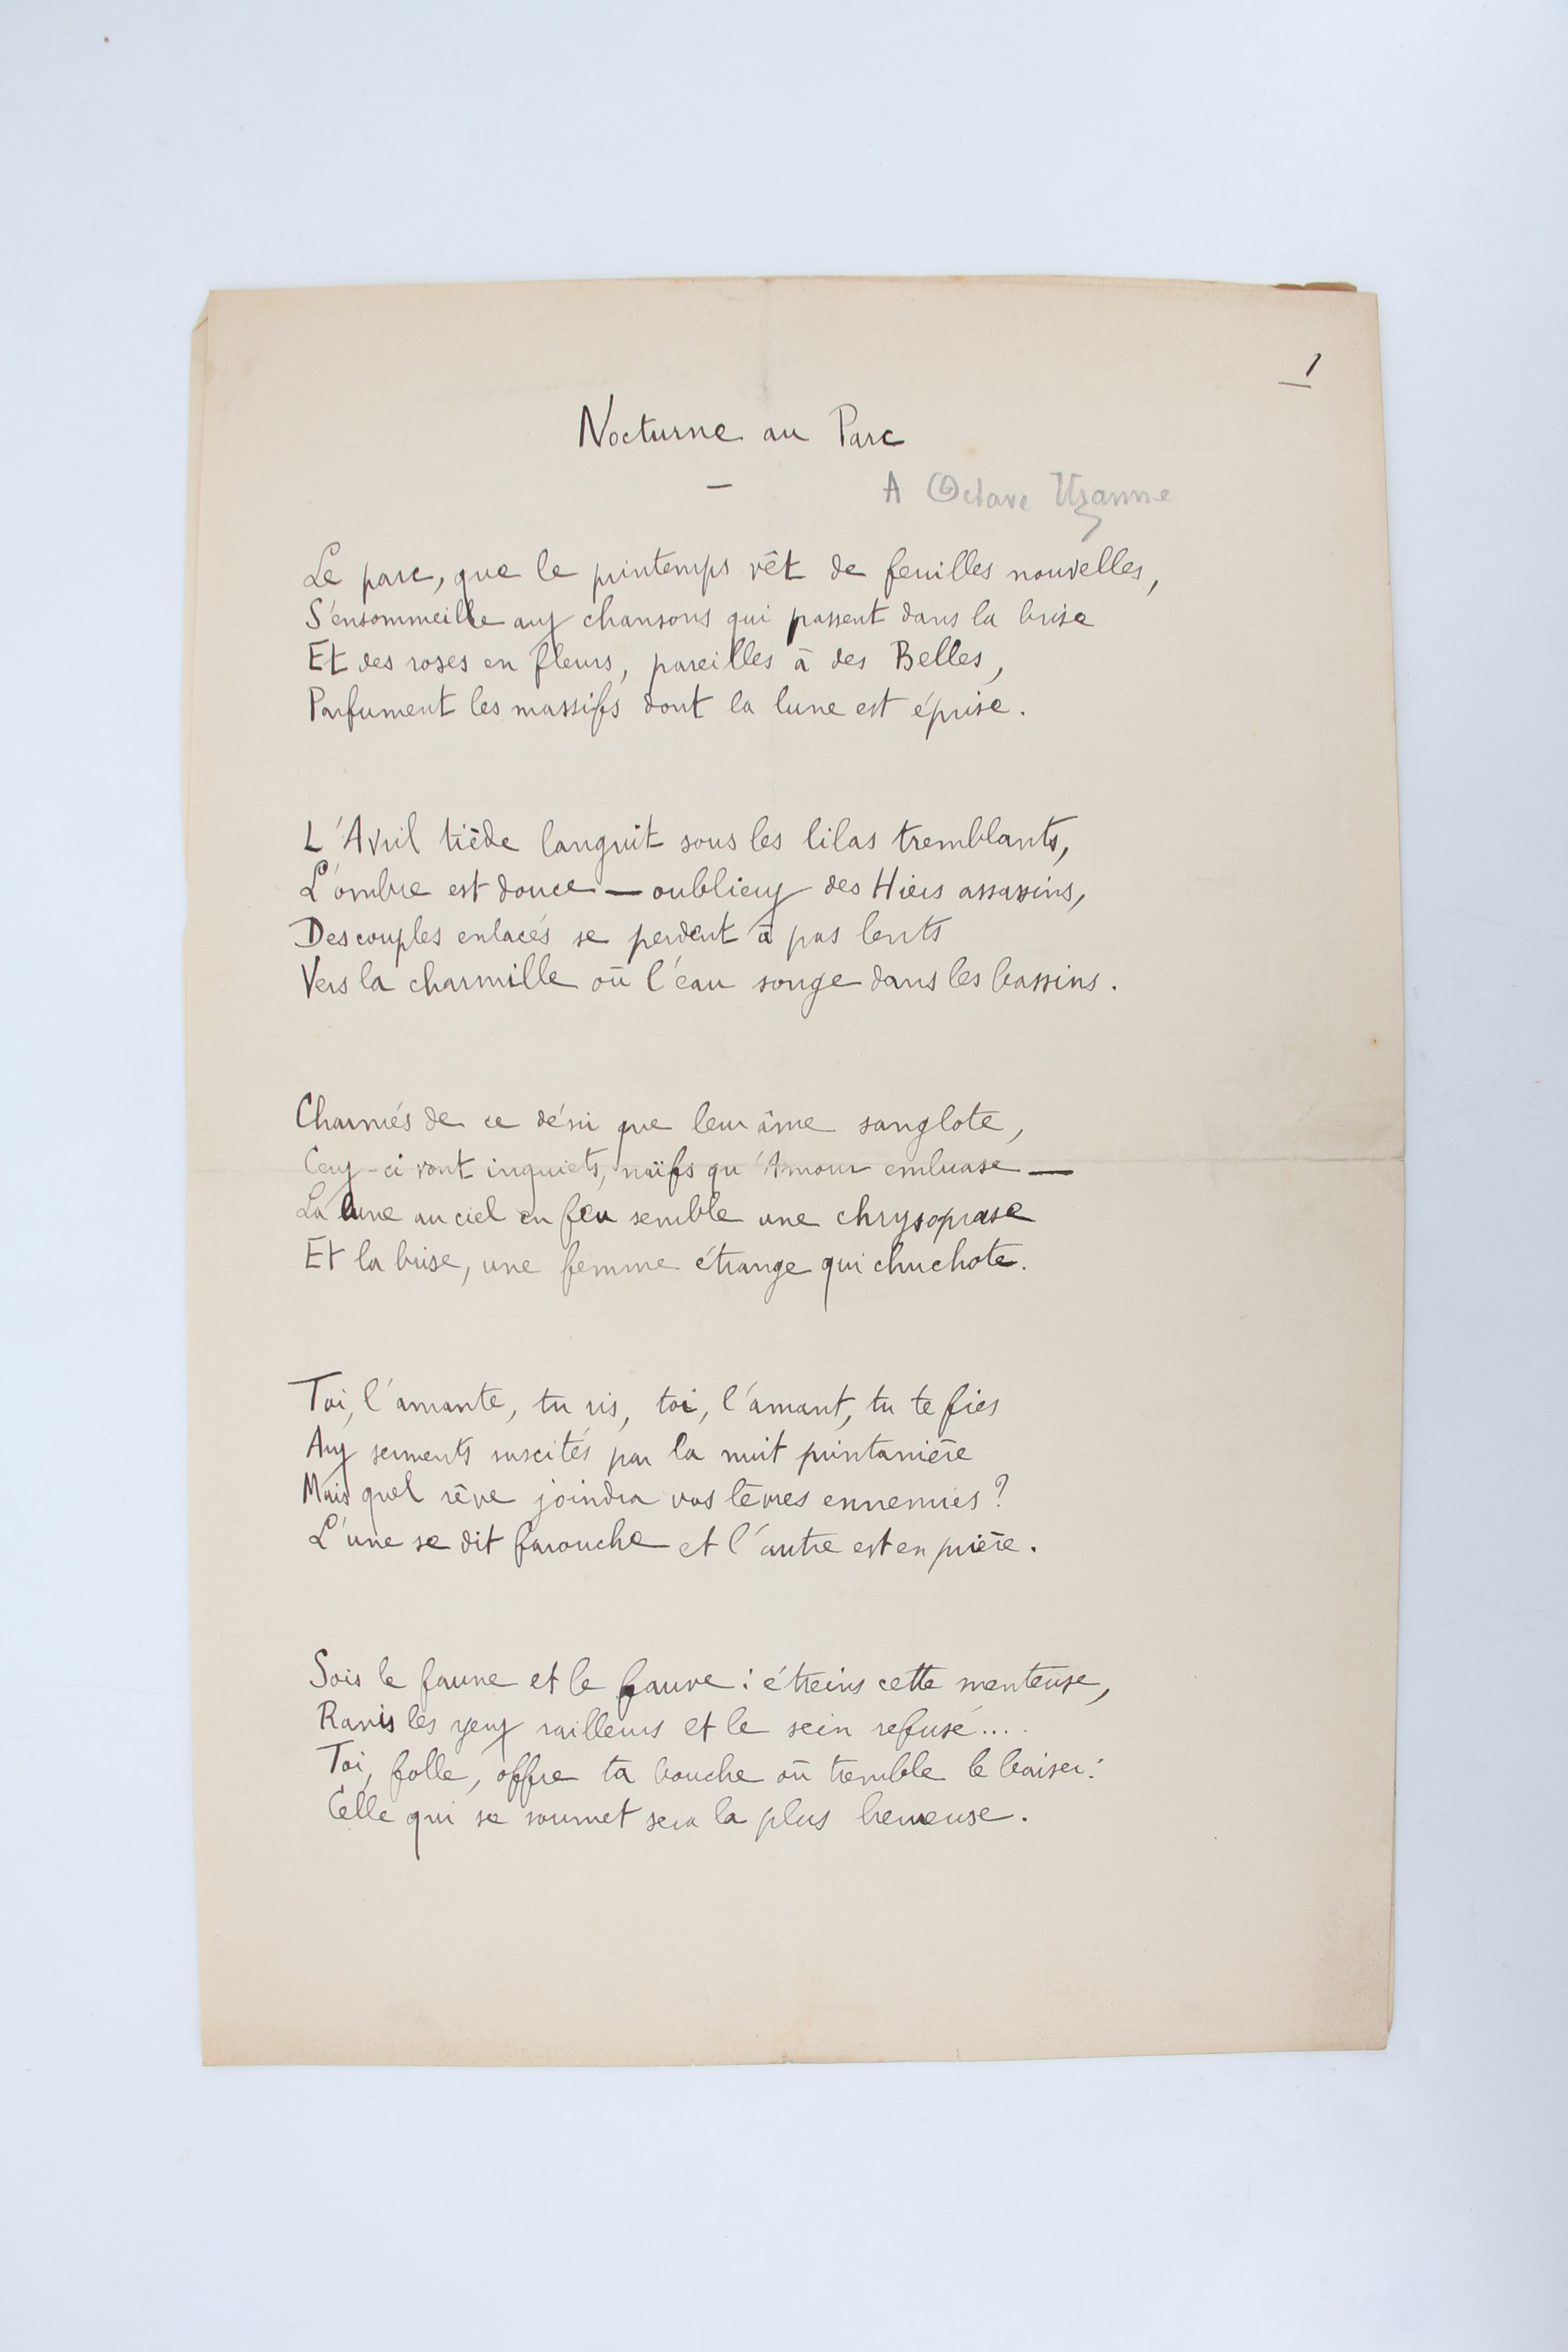 1
Nocturne au Parc
—
A Octave Uzanne
Le parc, que le printemps vêt de feuilles nouvelles,
S'ensommeille aux chansons qui passent dans la brise
Et des roses en fleurs, pareilles à des Belles,
Parfument les massifs dont la lune est éprise.
L'Avril tiède languit sous les lilas tremblants,
L'ombre est douce — oublieux des Hiers assassins,
Des couples enlacés se perdent à pas lents
Vers la charmille où l'eau songe dans les bassins.
Charmés de ce désir que leur âme sanglote,
Ceux-ci vont inquiets, naïfs qu'Amour embrase —
La lune au ciel en feu semble une chrysoprase
Et la brise, une femme étrange qui chuchote.
Toi, l'amante, tu ris, toi, l'amant, tu te fies
Aux serments suscités par la nuit printanière
Mais quel rêve joindra vos lèvres ennemies ?
L'une se dit farouche et l'autre est en prière.
Sois le faune et le fauve : étreins cette menteuse,
Ravis les yeux railleurs et le sein refusé....
Toi, folle, offre ta bouche où tremble le baiser :
Celle qui se soumet sera la plus heureuse.